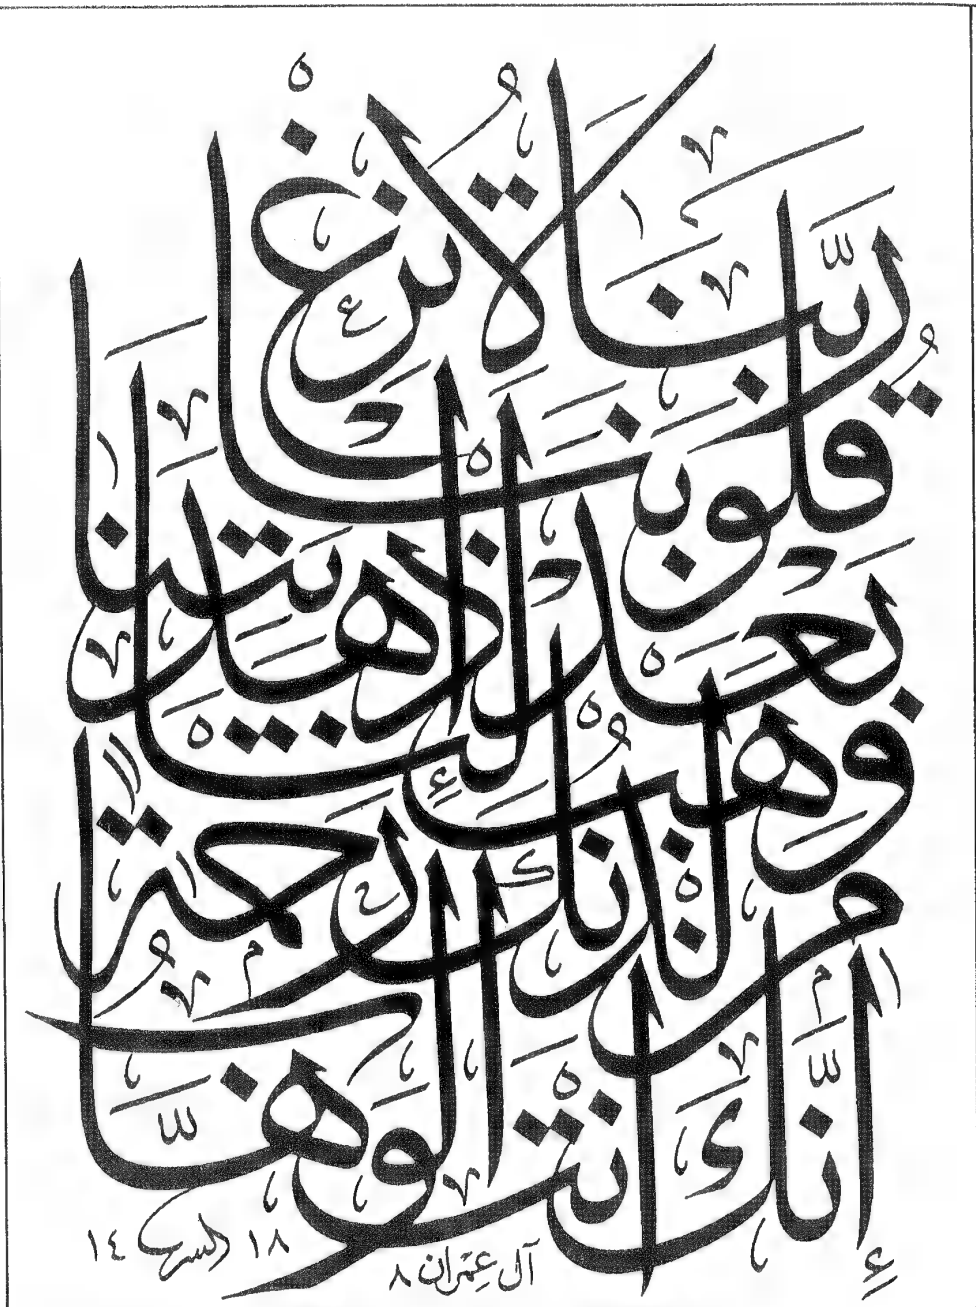 رَبَّنَا لَا تُزِغْ
قُلُوبَنَا
بَعْدَ إِذْ هَدَيْتَنَا
وَهَبْ لَنَا
مِنْ لَدُنْكَ رَحْمَةً
إِنَّكَ أَنْتَ الْوَهَّابُ
آل عِمْرَان ٨
١٨ ١٤